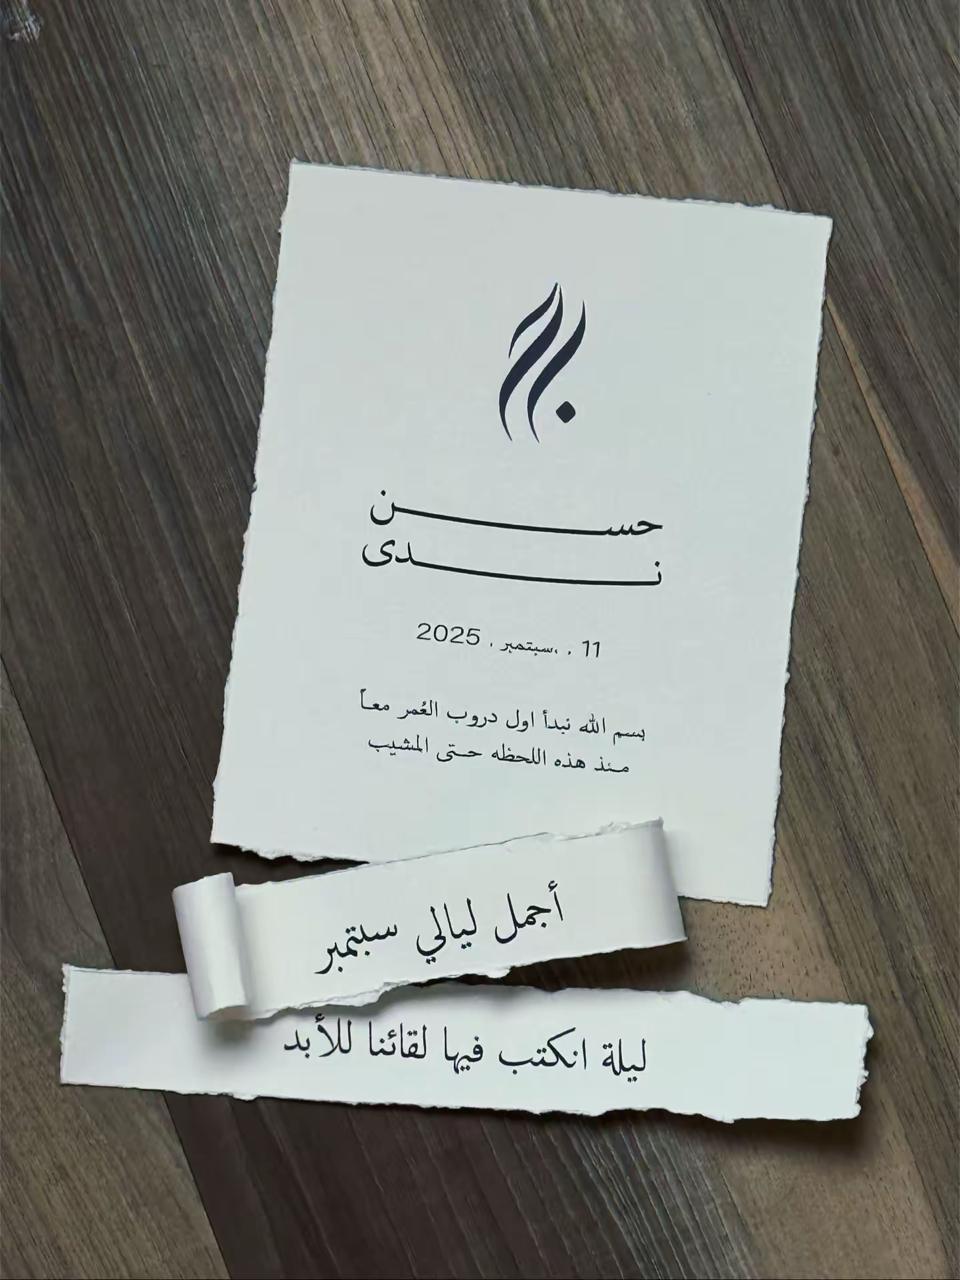 حسن
ندى
11 . سبتمبر . 2025
بسم الله نبدأ اول دروب العُمر معاً
منذ هذه اللحظه حتى المشيب
أجمل ليالي سبتمبر
ليلة انكتب فيها لقائنا للأبد